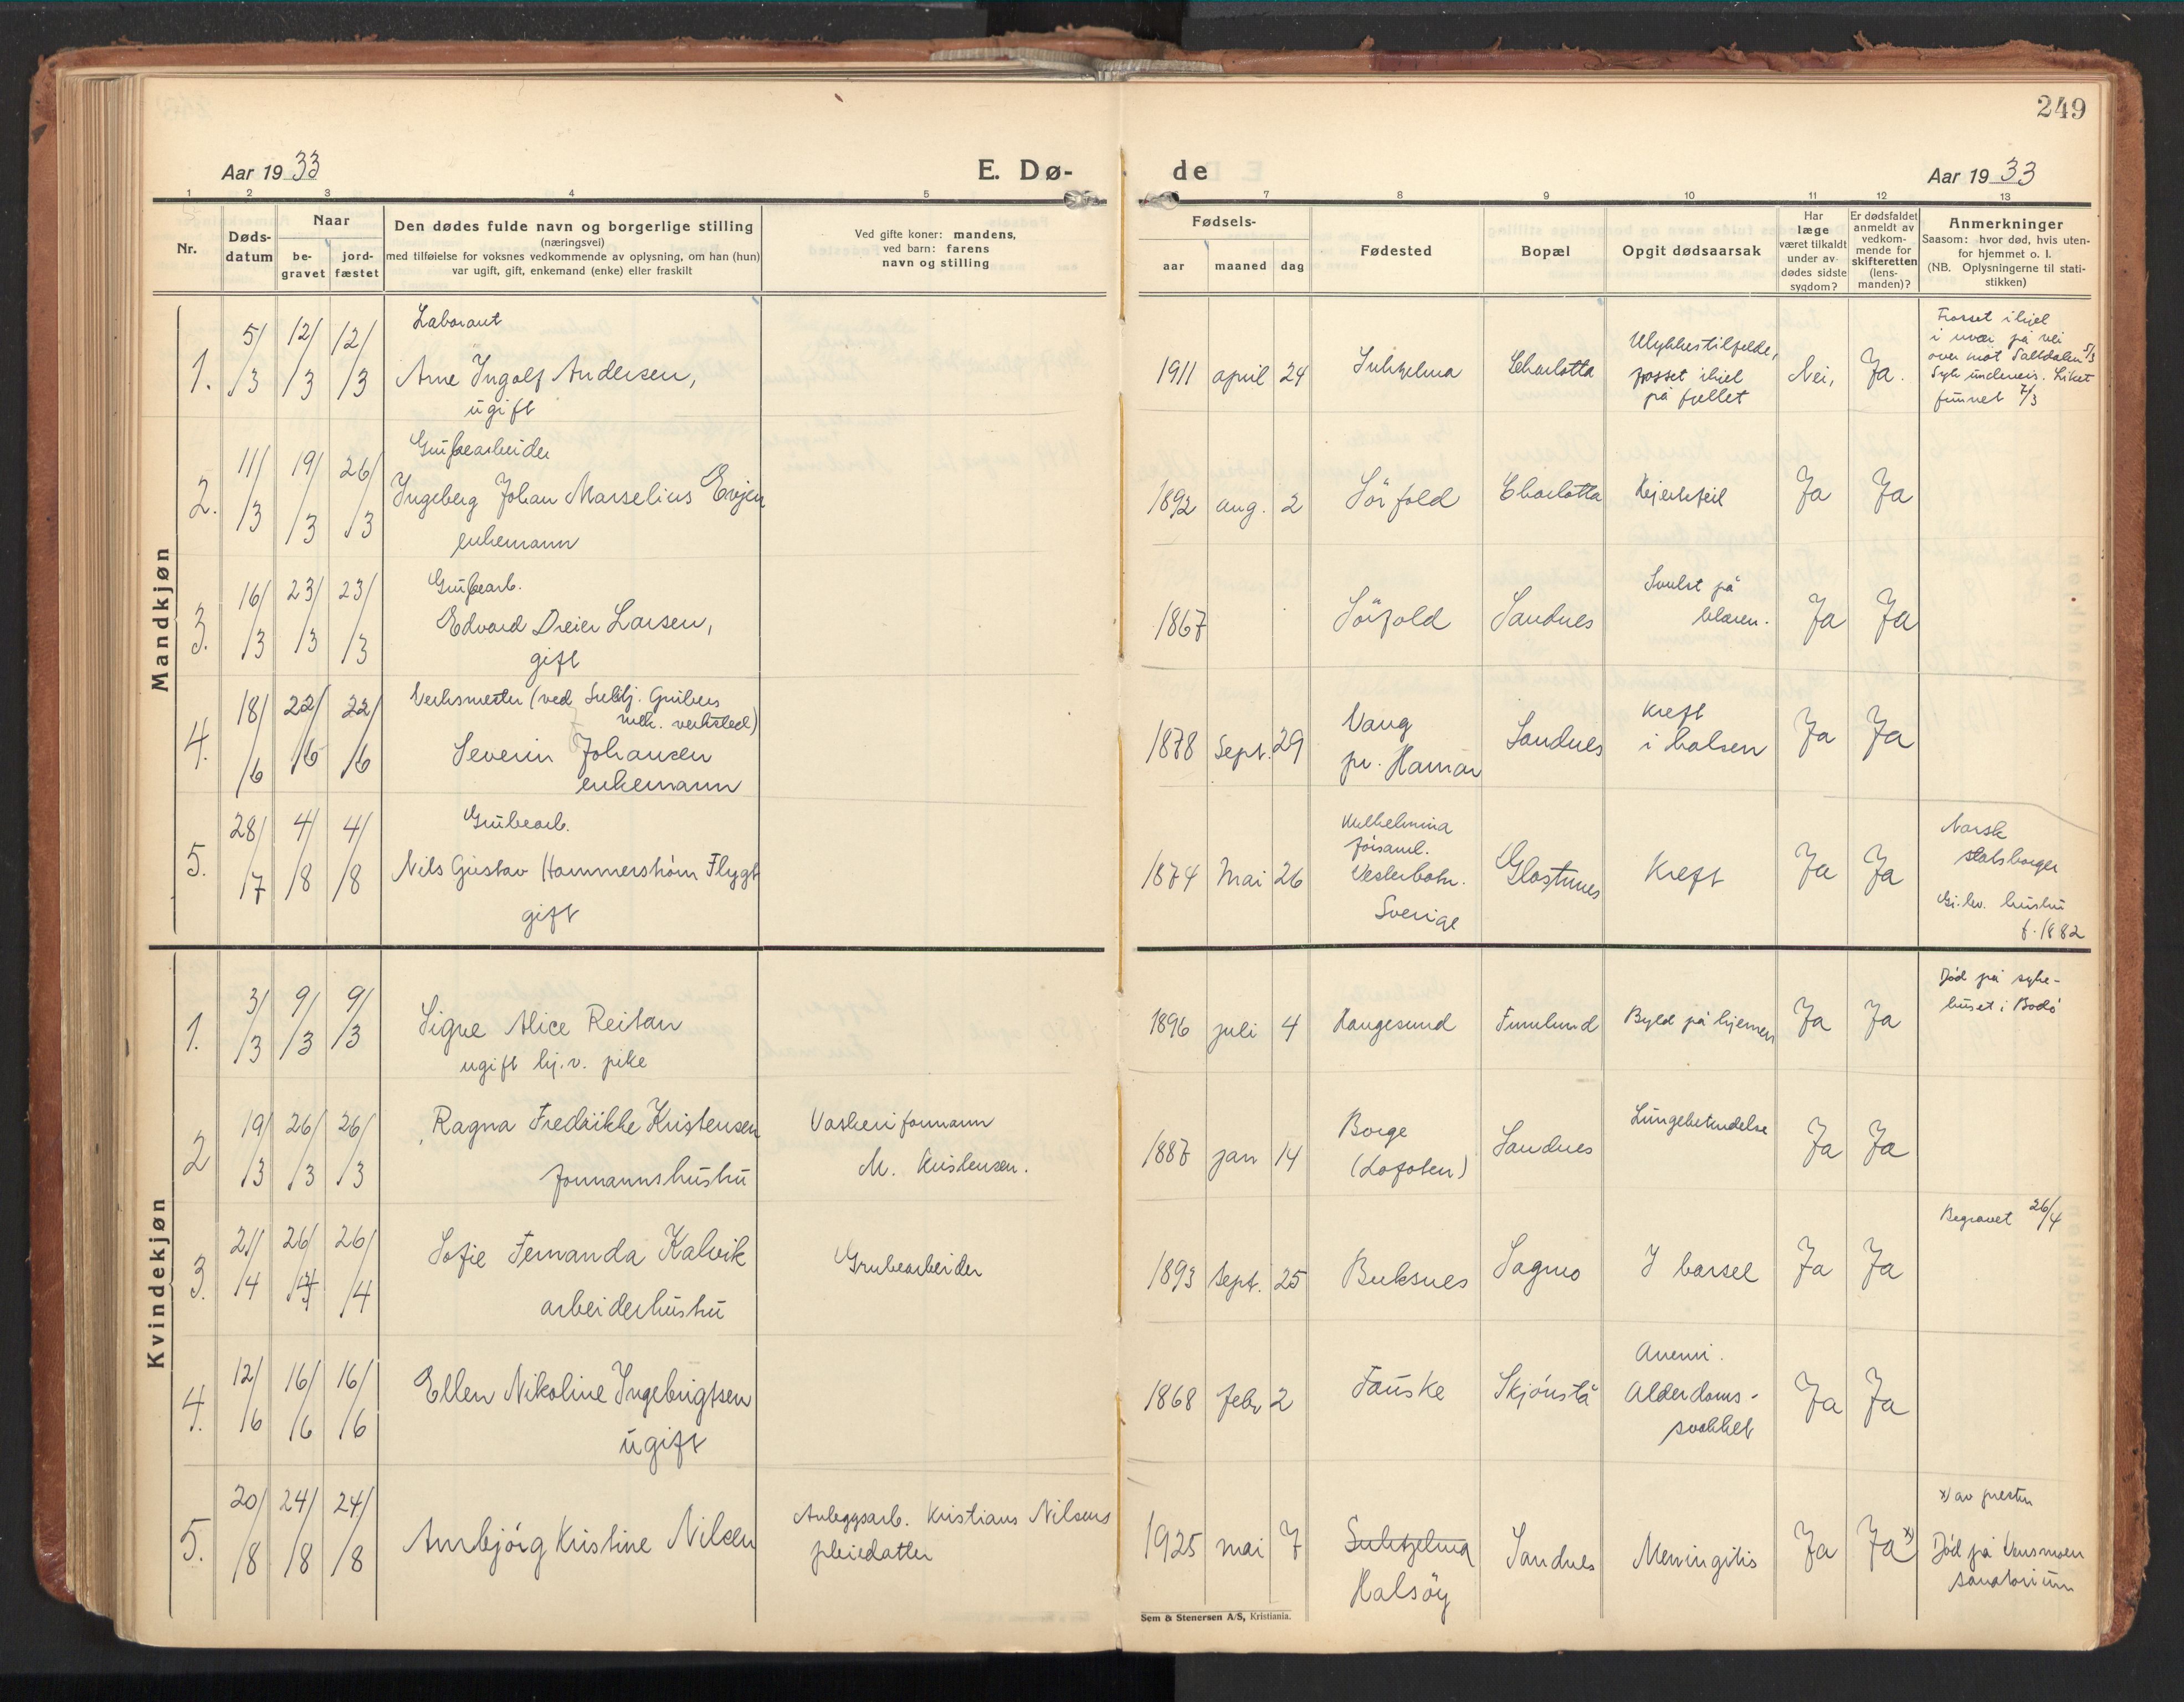 249
Aar 1933
E. Dø-
de
Aar 1933
1 2 3 4 5 6 7 8 9 10 11 12 13
Nr.
Døds-
datum
Naar
be-
gravet
jord-
fæstet
Den dødes fulde navn og borgerlige stilling
(næringsvei)
med tilføielse for voksnes vedkommende av oplysning, om han (hun)
var ugift, gift, enkemand (enke) eller fraskilt
Ved gifte koner: mandens,
ved barn: farens
navn og stilling
Fødsels-
aar maaned dag
Fødested
Bopæl
Opgit dødsaarsak
Har
læge
været tilkaldt
under av-
dødes sidste
sygdom?
Er dødsfaldet
anmeldt av
vedkom-
mende for
skifteretten
(lens-
manden)?
Anmerkninger
Saasom: hvor død, hvis uten-
for hjemmet o. l.
(NB. Oplysningerne til stati-
stikken)
Mandkjøn
1. 5/3 12/3 12/3
Laborant
Arne Ingolf Andersen,
ugift
1911 april 24
Sulitjelma
Charlotta
Ulykkestilfelde,
frosset ihjel
på fjellet
Nei, Ja.
Frosset ihjel
i uvær på vei
over mot Saltdalen 5/3
Syk underveis. Liket
funnet 7/3
2. 11/3 19/3 26/3
Grubearbeider
Ingeberg Johan Marselius Evjen
enkemann
1892 aug. 2
Sörfold
Charlotta
Hjertefeil
Ja Ja
3. 16/3 23/3 23/3
Grubearb.
Edvard Dreier Larsen,
gift
1867
Sörfold
Sandnes
Svulst på
blæren.
Ja Ja
4. 18/6 22/6 22/6
Verksmester (ved Sulitj. Grubers
mek. verksted)
Severin Johansen
enkemann
1878 Sept. 29
Vang
pr. Hamar
Sandnes
Kreft
i halsen
Ja Ja
5. 28/7 4/8 4/8
Grubearb.
Nils Gustav Hammershöm Flygt
gift
1874 Mai 26
Wilhelmina
forsaml.
Vesterbotn.
Sverige
Glastunes
Kreft
Ja Ja
Norsk
statsborger
Gj.lev. hustru
f. 1882
Kvindekjøn
1. 3/3 9/3 9/3
Signe Alice Reitan
ugift hj.v. pike
1896 juli 4
Haugesund
Furulund
Byld på hjernen
Ja Ja
Död på syke-
huset i Bodö
2 19/3 26/3 26/3
Ragna Fredrikke Kristensen
formannshustru
Vaskeriformann
M. Kristensen.
1887 jan 14
Borge
(Lofoten)
Sandnes
Lungebetendelse
Ja Ja
3. 21/4 26/4 26/4
Sofie Fernanda Kalvik
arbeiderhustru
Grubearbeider
1893 Sept. 25
Buksnes
Sagmo
I barsel
Ja Ja
Begravet 26/4
4. 12/6 16/6 16/6
Ellen Nikoline Ingebrigtsen
ugift
1868 febr 2
Fauske
Skjönstå
Anemi.
Alderdoms-
svakhet
Ja Ja
5. 20/8 24/8 24/8
Annbjörg Kristine Nilsen
Anleggsarb. Kristians Nilsens
pleiedatter
1925 mai 7
Sulitjelma
Halsöy
Sandnes
Meningitis
Ja Ja x)
x) av presten
Död på Vensmoen
sanatorium
Sem & Stenersen A/S, Kristiania.